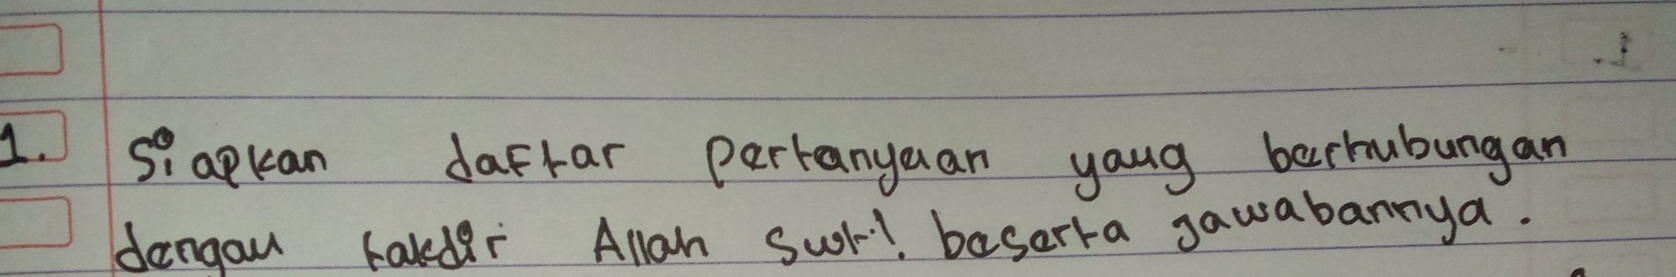 1. Siapkan daftar pertanyaan yang berhubungan
dengan takdir Allah Swt.! beserta jawabannya.